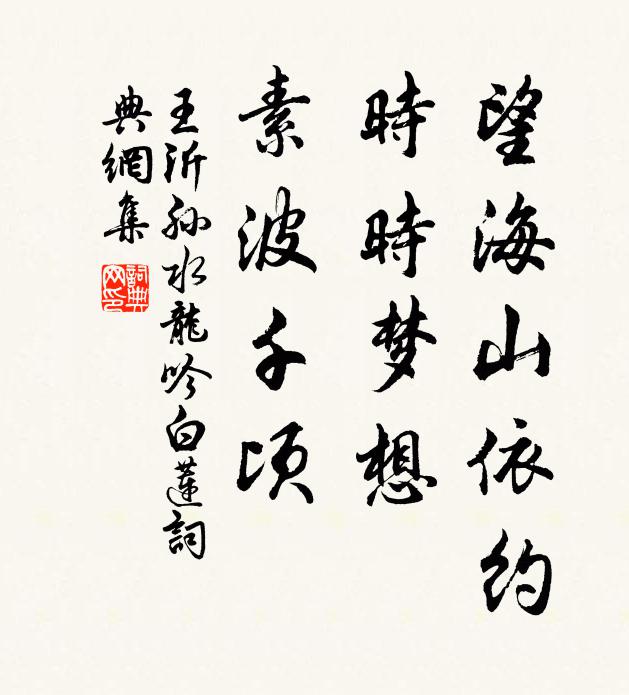 望海山依約
時時梦想
素波千頃
王沂孙水龍吟白蓮詞
典網集
詞典网印